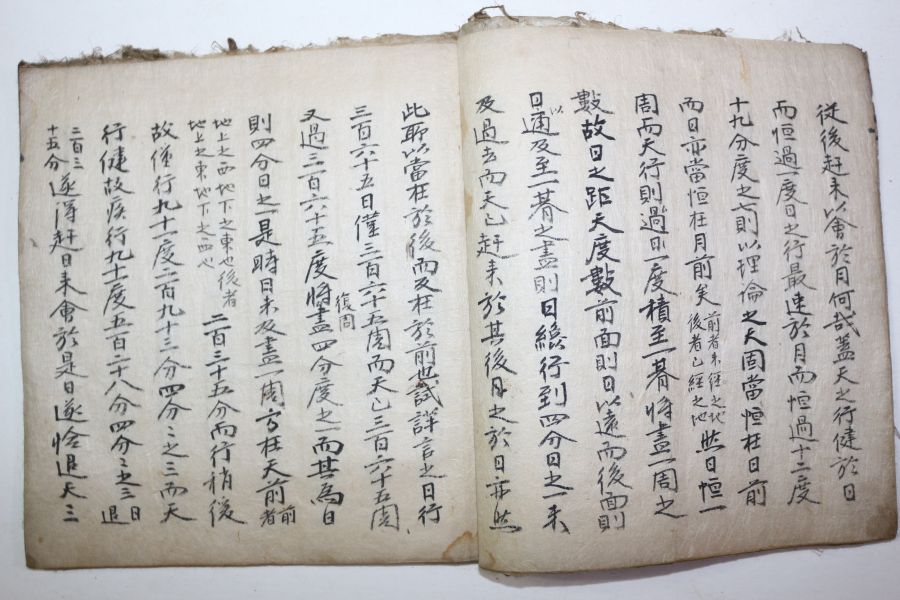 從後赶來以會於月何哉蓋天之行健於日
而恒過一度日之行最速於月而恒過十二度
十九分度之七則以理倫之天固當恒在日前
而日亦當恒在月前矣前者未經之地後者已經之地然日恒一
周而天行則過日一度積至一朞將盡一周之
數故日之距天度數前面則日以遠而後面則
日以通及至一朞之盡則日纔行到四分日之一未
及過去而天已赶來於其後月之於日亦然
此所以當在於後而反在於前也試詳言之日行
三百六十五日僅三百六十五周而天已三百六十五周
又過三百六十五度將盡復周四分度之一而其爲日
則四分日之一是時日未及盡一周方在天前前者
地上之西地下之東也後者地上之東地下之西也二百三十五分而行稍後
故僅行九十一度二百九十三分四分之三而天
行健故疾行九十一度五百二十八分四分之三日退
二百三十五分遂得赶日來會於是日遂恰退天三